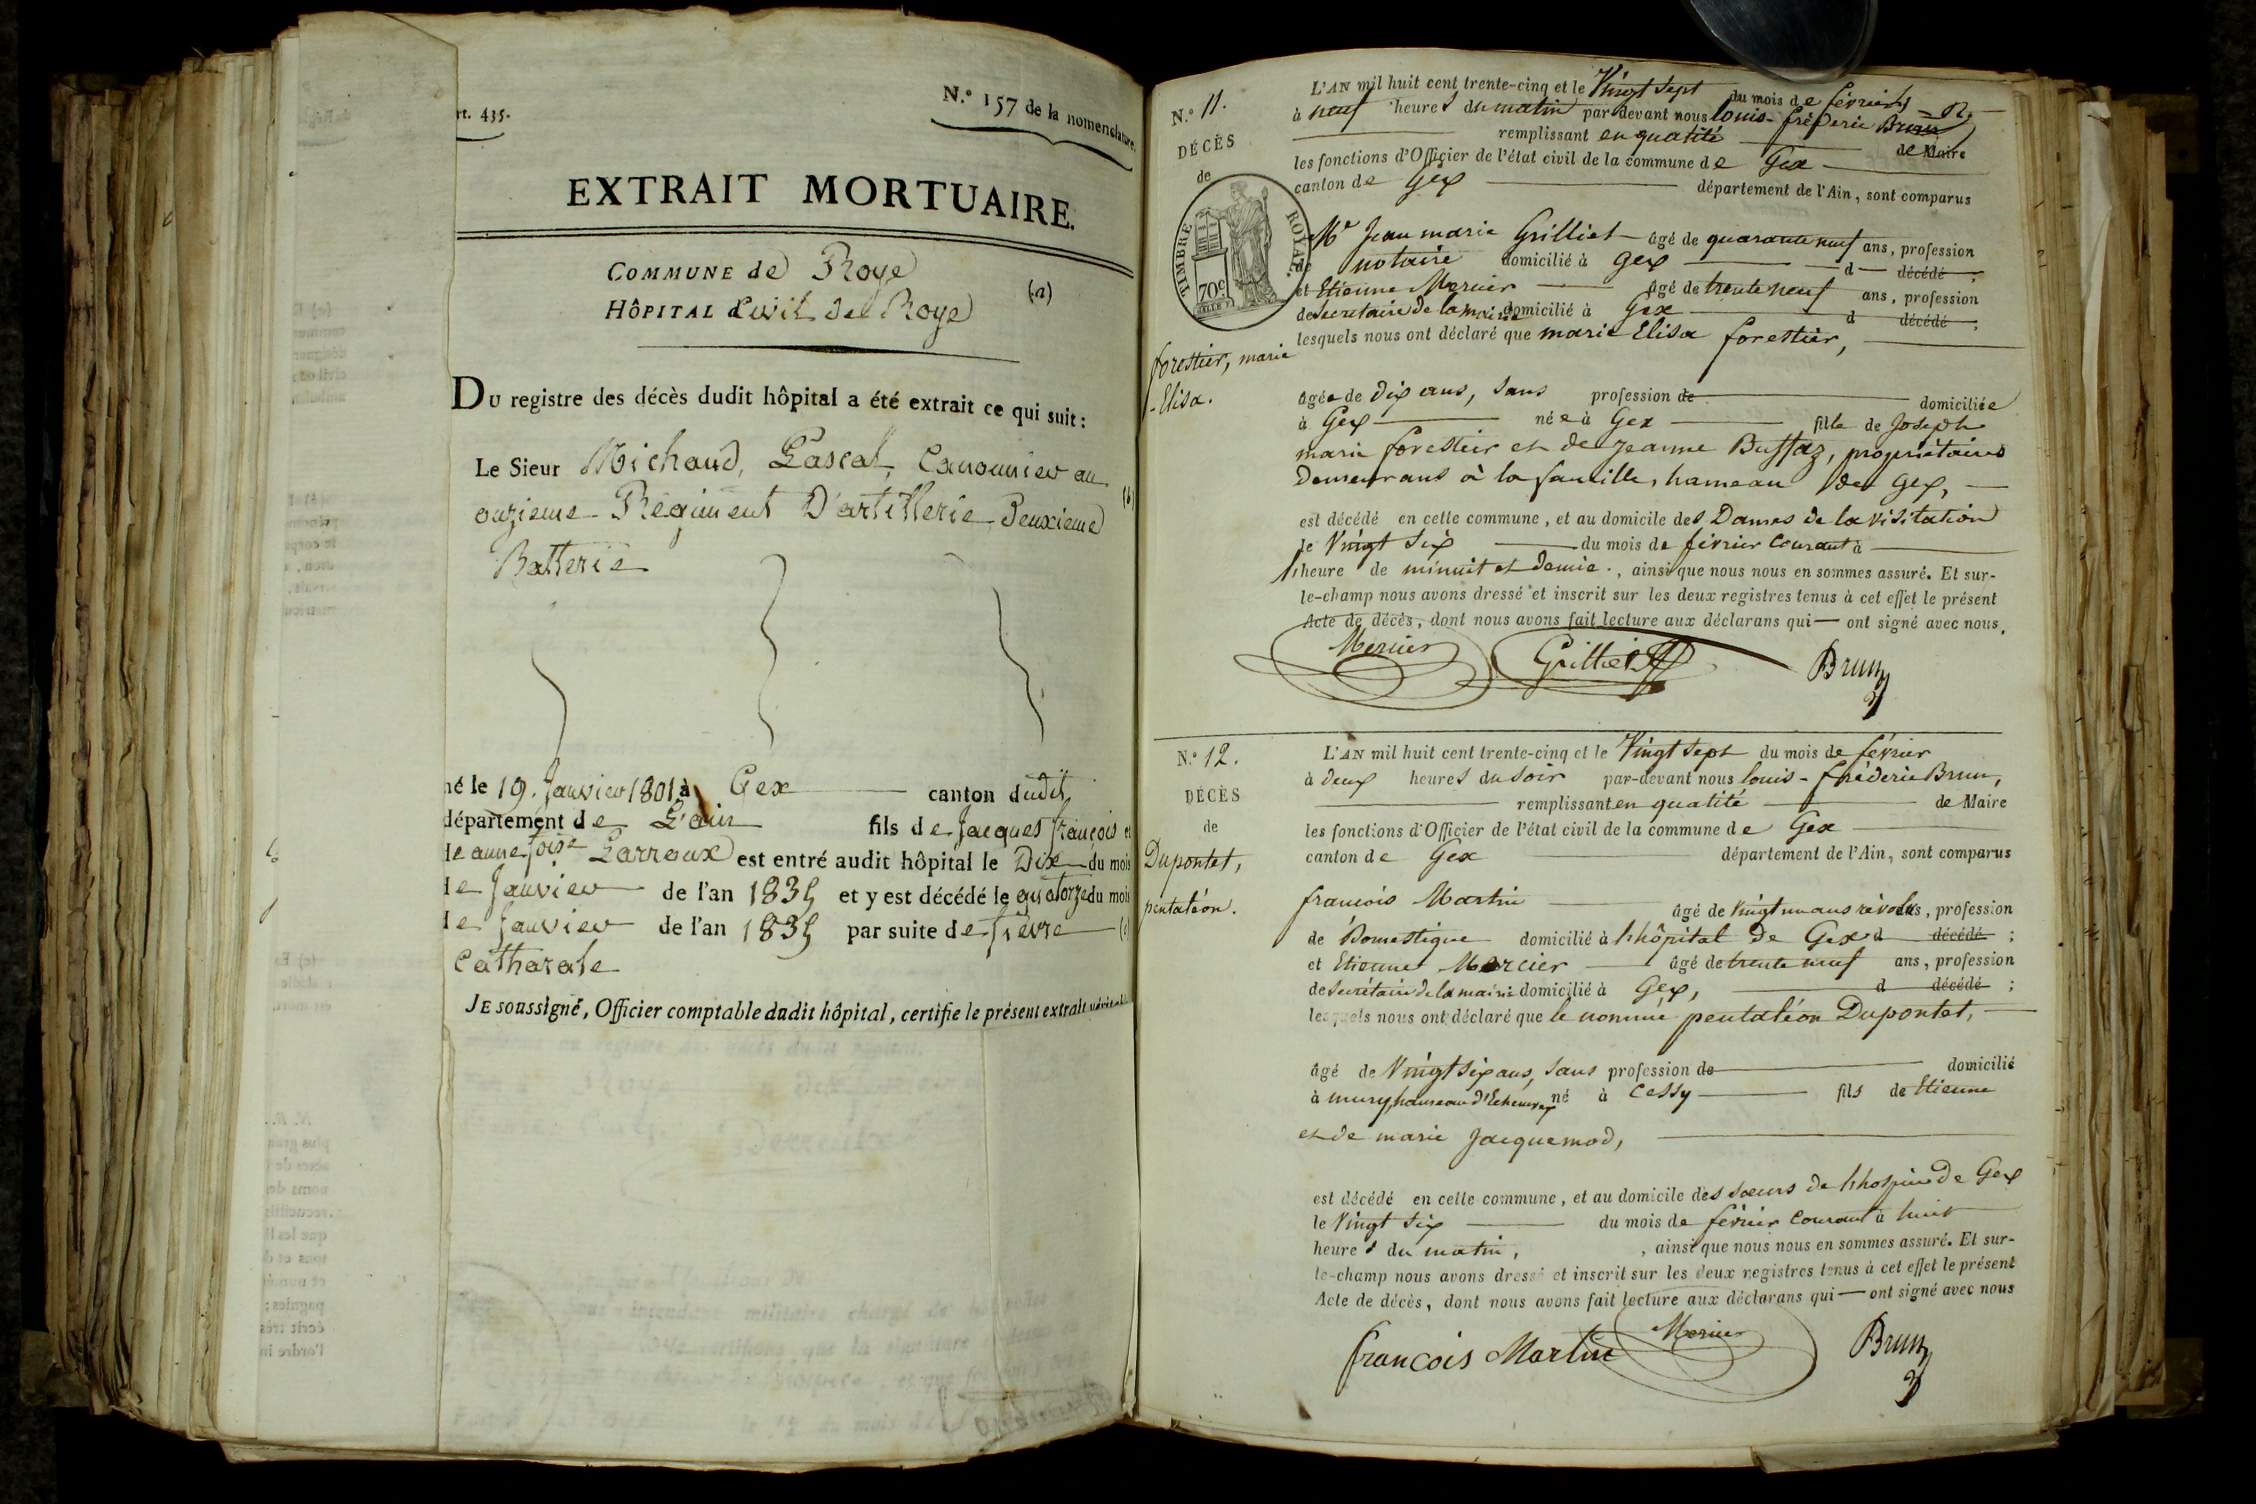 rt. 435.
N.º 157 de la nomenclature.
EXTRAIT MORTUAIRE.
COMMUNE de Roye
HÔPITAL Civil de Roye
(a)
DU registre des décès dudit hôpital a été extrait ce qui suit :
Le Sieur Michaud, Pascal, Canonnier au
onzieme Régiment D'artillerie Deuxieme
(b)
Batterie
né le 19. Janvier 1801 à Gex canton dudit
département de L'ain fils de Jacques françois et
de anne foise Larroux est entré audit hôpital le Dix du mois
de Janvier de l'an 1835 et y est décédé le quatorze du mois
de Janvier de l'an 1835 par suite de fièvre
Catharale
JE soussigné, Officier comptable dudit hôpital, certifie le présent extrait véritable
N.º 11.
DÉCÈS
de
TIMBRE ROYAL.
70c
forestier, marie
Elisa.
L'AN mil huit cent trente-cinq et le Vingt Sept du mois de février
à neuf heures du matin par devant nous louis-fréderic Brun
remplissant en qualité de Maire
les fonctions d'Officier de l'état civil de la commune de Gex
canton de Gex département de l'Ain, sont comparus
Mr Jean marie Grilliet âgé de quarante neuf ans, profession
de notaire domicilié à Gex d décédé ;
et Etienne Mercier âgé de trente neuf ans, profession
de Secretaire de la mairie domicilié à Gex d décédé ;
lesquels nous ont déclaré que marie Elisa forestier,
âgée de dix ans, Sans profession de domiciliée
à Gex née à Gex fille de Joseph
marie forestier et de Jeanne Buffaz, propriétaires
Demeurans à la faucille, hameau de Gex,
est décédé en cette commune, et au domicile des Dames de la visitation
le Vingt Six du mois de février Courant à
heure de minuit et demie., ainsi que nous nous en sommes assuré. Et sur-
le-champ nous avons dressé et inscrit sur les deux registres tenus à cet effet le présent
Acte de décès, dont nous avons fait lecture aux déclarans qui — ont signé avec nous.
Mercier Grilliet Brun
N.º 12.
DÉCÈS
de
Dupontet,
pentaléon.
L'AN mil huit cent trente-cinq et le Vingt Sept du mois de février
à deux heures du Soir par-devant nous louis-fréderic Brun,
remplissant en qualité de Maire
les fonctions d'Officier de l'état civil de la commune de Gex
canton de Gex département de l'Ain, sont comparus
francois Martin âgé de Vingt un ans révolus, profession
de Domestique domicilié à l'hôpital De Gex d décédé ;
et Etienne Mercier âgé de trente neuf ans, profession
de Secrétaire de la mairie domicilié à Gex, d décédé ;
lesquels nous ont déclaré que le nommé pentaléon Dupontet,
âgé de Vingt Six ans, Sans profession de domicilié
à mury, hameau d'Echenevex né à Cessy fils de Etienne
et de marie Jacquemod,
est décédé en cette commune, et au domicile des sœurs de l'hospice de Gex
le Vingt Six du mois de février Courant à huit
heures du matin, , ainsi que nous nous en sommes assuré. Et sur-
le-champ nous avons dressé et inscrit sur les deux registres tenus à cet effet le présent
Acte de décès, dont nous avons fait lecture aux déclarans qui — ont signé avec nous
francois Martin Mercier Brun